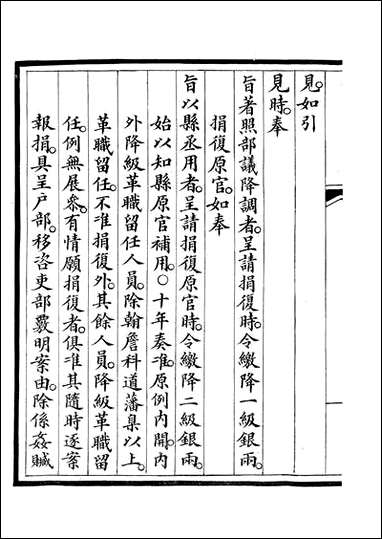 見。如引
見時。奉
旨著照部議降調者。呈請捐復時。令繳降一級銀兩。
捐復原官。如奉
旨以縣丞用者。呈請捐復原官時。令繳降二級銀兩。
始以知縣原官補用。○十年奏准。原例內開。內
外降級革職留任人員。除翰詹科道藩臬以上。
革職留任。不准捐復外。其餘人員。降級革職留
任。例無展參。有情願捐復者。俱准其隨時逐案
報捐。具呈戶部。移咨吏部覈明案由。除係姦贓